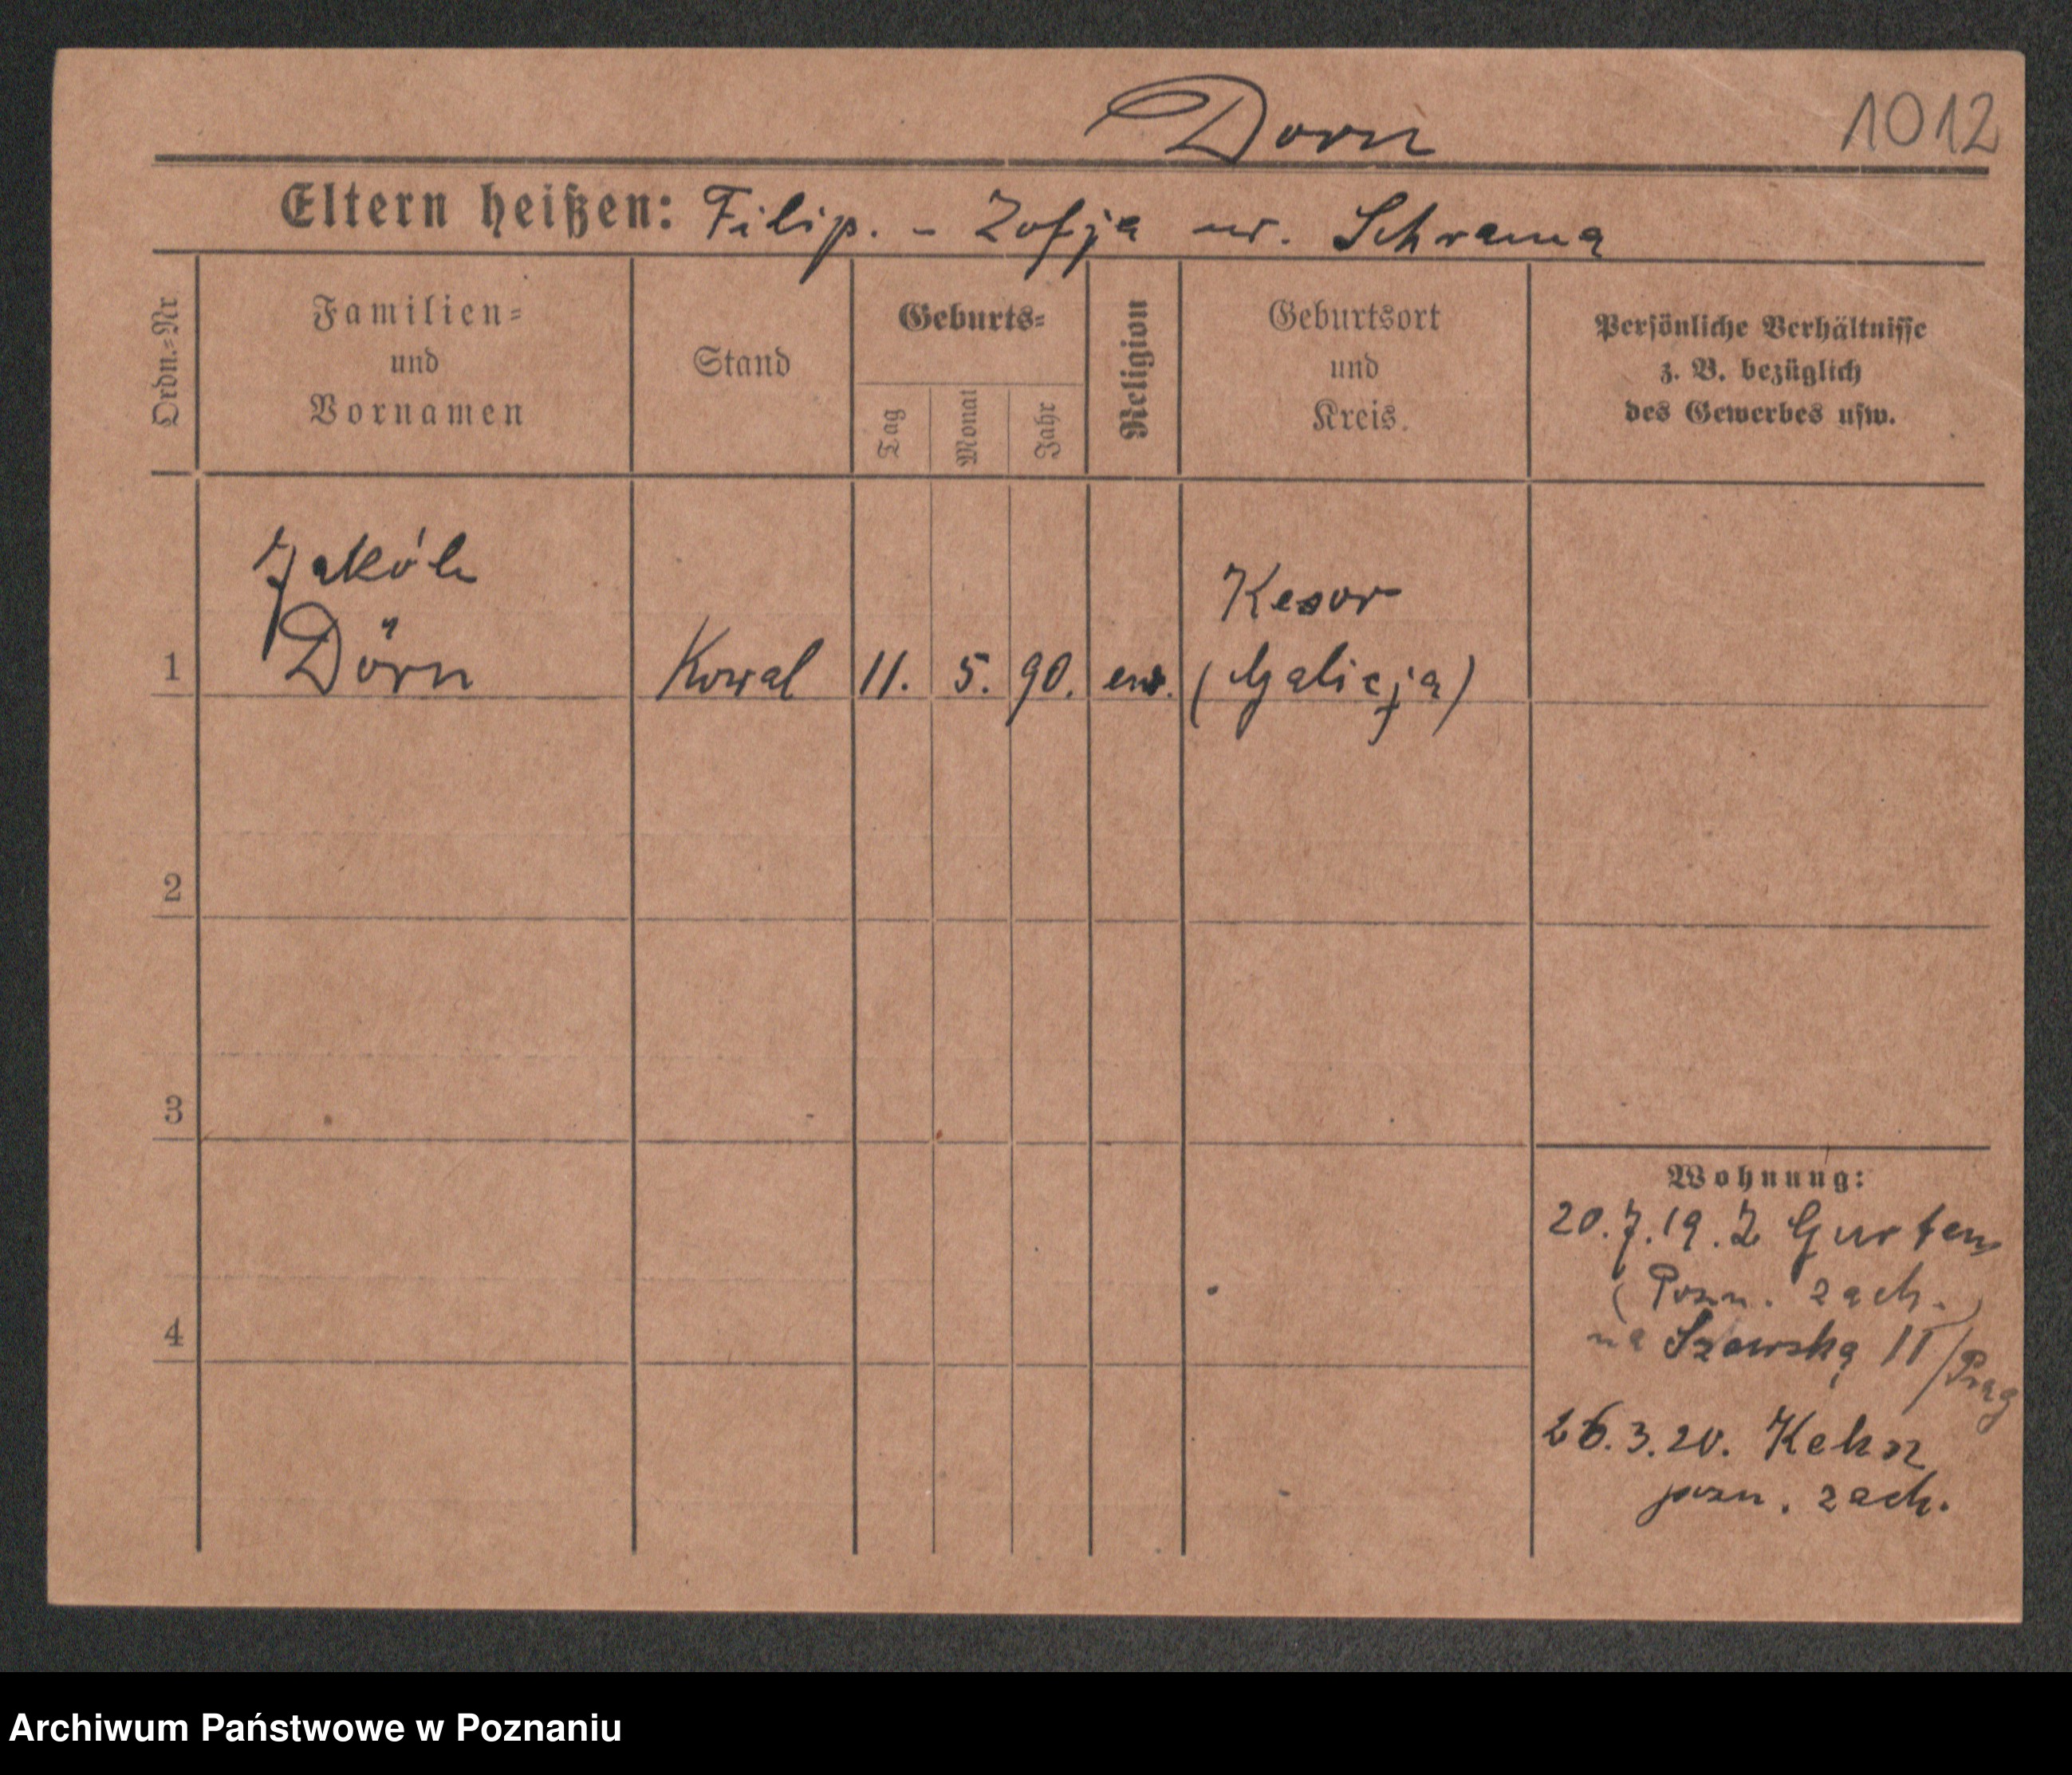 Dorn
1012
Eltern heißen: Filip. - Zofja ur. Schrama
Ordn.-Nr
Familien-
und
Vornamen
Stand
Geburts-
Tag
Monat
Jahr
Religion
Geburtsort
und
Kreis.
Persönliche Verhältnisse
z. B. bezüglich
des Gewerbes usw.
Jakób
Dörn
1
Kowal
11.
5.
90.
ew.
Kesor
(Galicja)
2
3
4
Wohnung:
20.7.19. Z Gurten
(Pozn. zach.)
na Szewską 11/Prag
26.3.20. Keksz
pozn. zach.
Archiwum Państwowe w Poznaniu